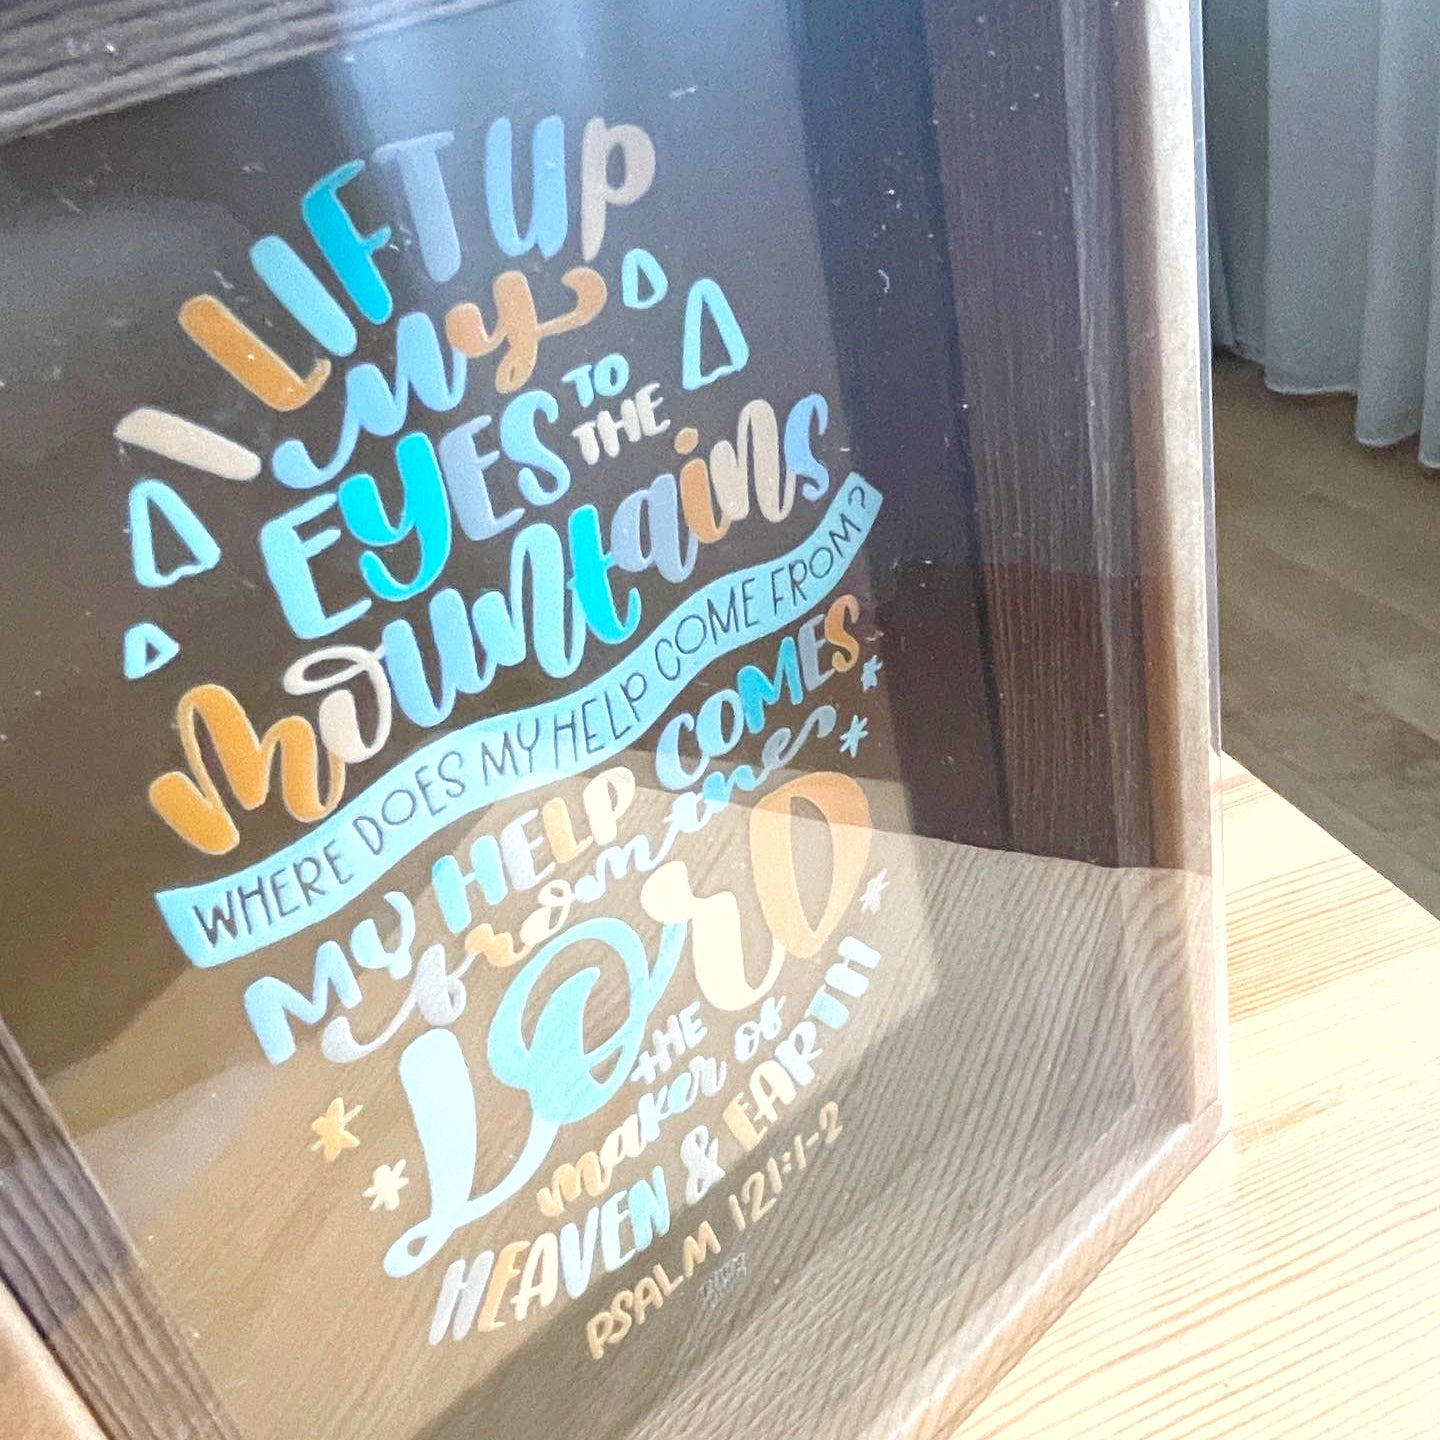 I LIFT UP
my
EYES TO
THE
mountains
WHERE DOES MY HELP COME FROM?
MY HELP COMES
from the
Lord
THE
maker of
HEAVEN & EARTH
PSALM 121:1-2